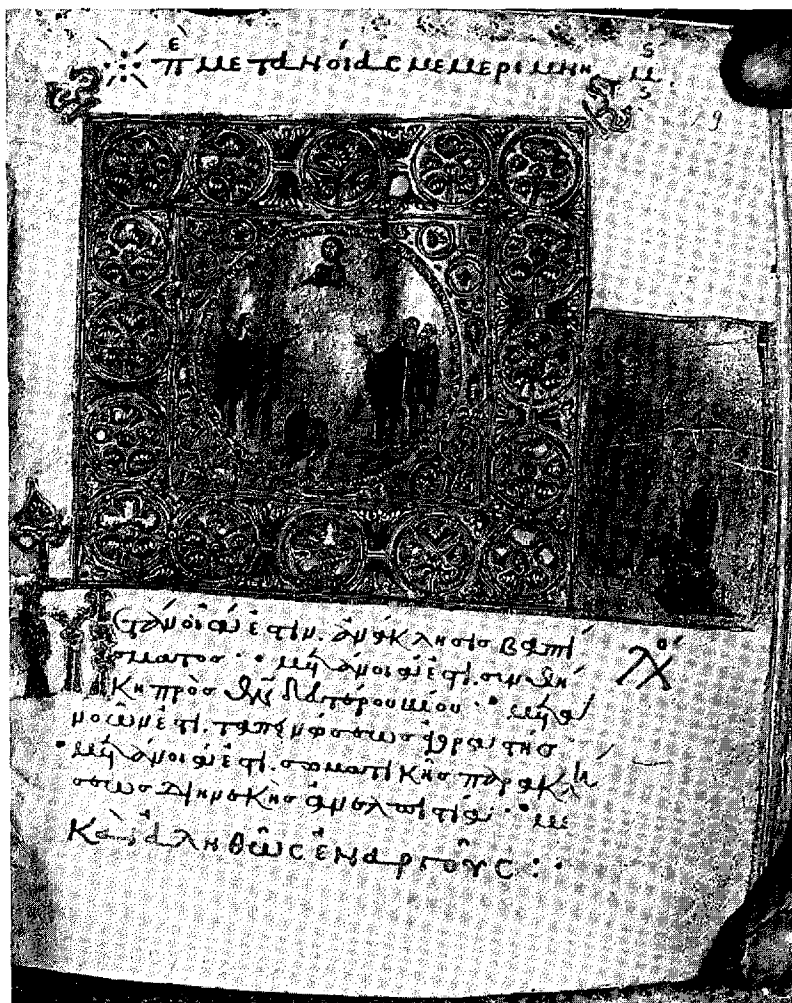 μετανοίας μεμεριμνημ
19
Μετάνοιά ἐστιν. ἀνάκλησις βαπτί
σματος · μετάνοιά ἐστι. συνθή
κη πρὸς θν δευτέρου βίου · μετά
νοιά ἐστι. ταπεινώσεως ἀγοραστής
· μετάνοιά ἐστι. σωματικῆς παρακλή
σεως διηνεκὴς ἀνελπιστία ·
Καὶ ἀληθῶς ἐναργοῦς :·